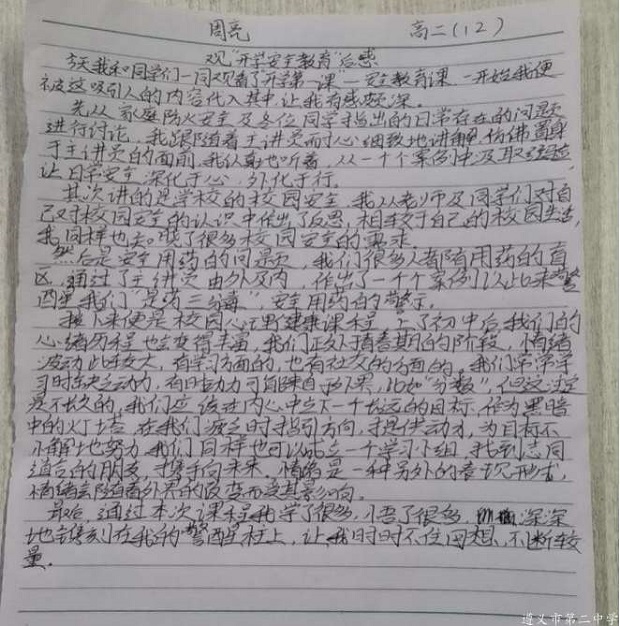 周亮 高二(12)
观"开学安全教育"后感
今天我和同学们一同观看了"开学第一课"—安全教育课,一开始我便
被这吸引人的内容代入其中,让我有感颇深。
先从家庭防火安全及各位同学指出的日常存在的问题
进行讨论,我跟随着主讲员耐心细致地讲解,仿佛置身
于主讲员的面前,我认真地听着,从一个个案例中汲取经验,
让日常安全深化于心,外化于行。
其次讲的是学校的校园安全,我从老师及同学们对自
己对校园安全的认识中作出了反思,相较于自己的校园生活,
我同样也发现了很多校园安全的需求
然后是安全用药的问题,我们很多人都有用药的盲
区,通过了主讲员由外及内,作出了一个个案例以此来警
醒我们"是药三分毒",安全用药的警示。
接下来便是校园心理健康课程,上了初中后我们的
心绪历程也会变得丰富,我们正处于青春期的阶段,情绪
波动比较大,有学习方面的,也有社交的方面的,我们常常学
习时缺乏动力,有时动力可能来自于外界,比如"分数",但这注定
是不长久的,我们应该在内心中立下一个长远的目标,作为黑暗
中的灯塔,在我们疲乏时指引方向,提供动力,为目标不
懈地努力,我们同样也可以成立一个学习小组,找到志同
道合的朋友,携手向未来,情绪是一种另外的表现形式,
情绪会随着外界的改变而受其影响。
最后,通过本次课程我学了很多,小悟了很多,深深
地镌刻在我的警醒柱上,让我时时不住回想,不断较
量。
遵义市第二中学